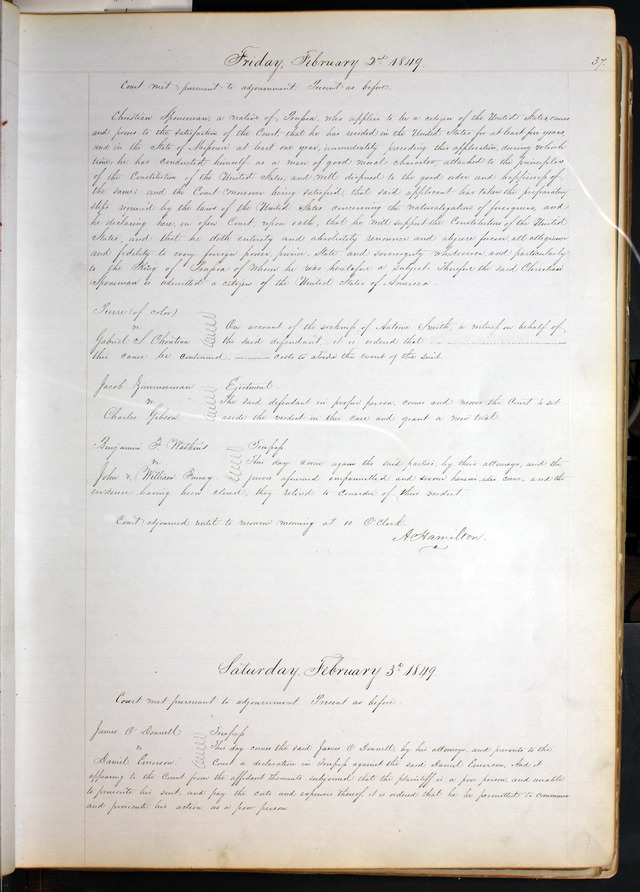 Friday, February 2d 1849
37.
Court met pursuant to adjournment. Present as before.
Christian Sponsman, a native of Prussia, who applies to be a citizen of the United States, comes
and proves to the satisfaction of the Court, that he has resided in the United States for at least five years,
and in the State of Missouri at least one year, immediately preceding this application, during which
time, he has conducted himself as a man of good moral character, attached to the principles
of the Constitution of the United States, and well disposed to the good order and happiness of
the same: and the Court moreover being satisfied, that said applicant has taken the preparatory
steps required by the laws of the United States concerning the naturalization of foreigners, and
he declaring here, in open Court, upon oath, that he will support the Constitution of the United
States, and that he doth entirely and absolutely renounce and abjure forever, all allegiance
and fidelity to every foreign power, prince, State and sovereignty whatsoever, and particularly
to the King of Prussia of whom he was heretofore a subject. Therefore the said Christian
Sponsman is admitted a citizen of the United States of America.
Pierre (of color)
vs On account of the sickness of Antoine Smith, a witness on behalf of
Gabriel S Chouteau the said defendant, it is ordered that
this cause be continued, costs to abide the event of the suit.
Jacob Zimmerman Ejectment
vs The said defendant in proper person, comes and moves the Court to set
Charles Gibson aside the verdict in this case and grant a new trial.
Benjamin F Watkins Trespass.
vs This day come again the said parties, by their attorneys, and the
John & William Finney jurors aforesaid empannelled and sworn herein, also come, and the
evidence having been closed, they retired to consider of their verdict.
Court adjourned until to morrow morning at 10 O'Clock.
A. Hamilton.
Saturday, February 3d 1849.
Court met pursuant to adjournment. Present as before.
James O'Donnell Trespass
vs This day comes the said James O'Donnell, by his attorney, and presents to the
Daniel Emerson Court a declaration in Trespass against the said Daniel Emerson. And it
appearing to the Court from the affidavit thereunto subjoined that the plaintiff is a poor person, and unable
to prosecute his suit, and pay the costs and expenses thereof, it is ordered that he be permitted to commence
and prosecute his action as a poor person.